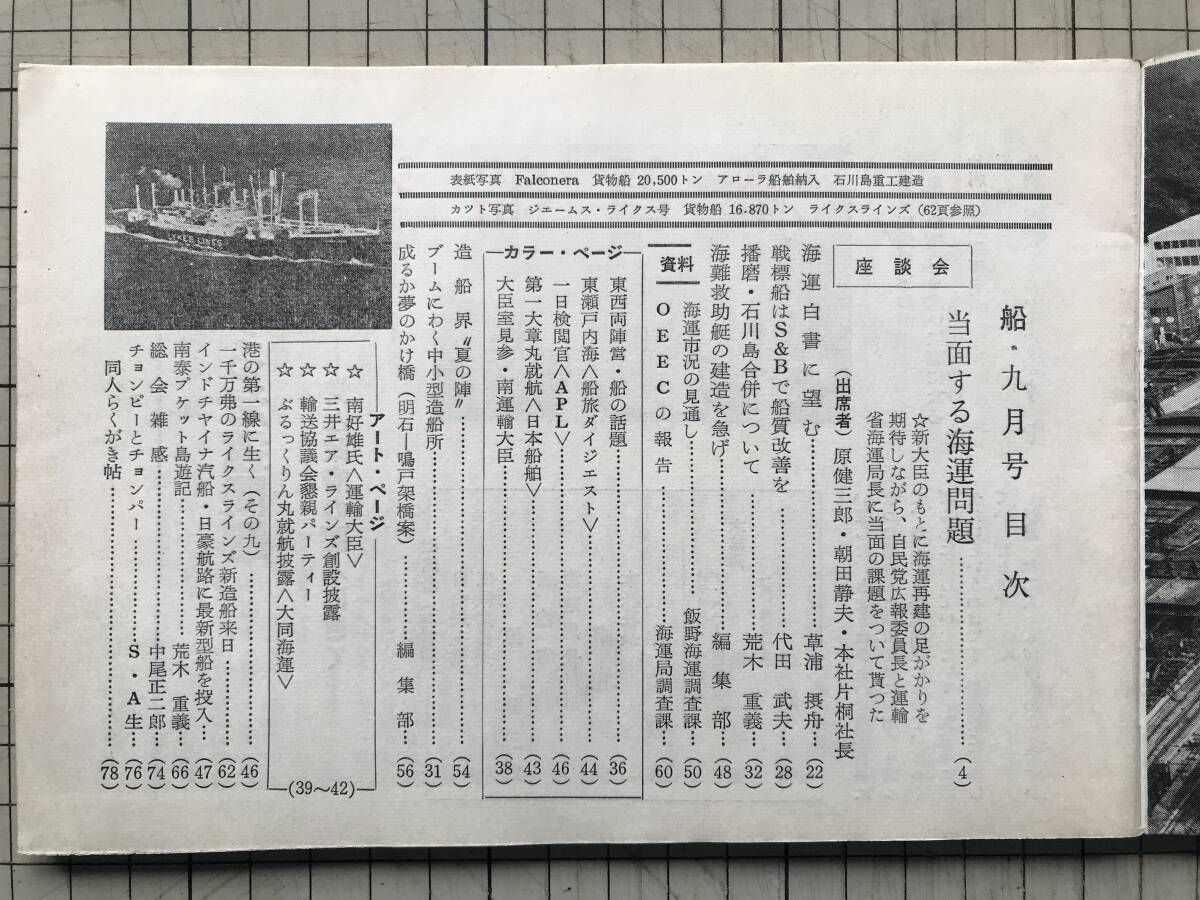 表紙写真 Falconera 貨物船 20,500トン アローラ船舶納入 石川島重工建造
カツト写真 ジエームス・ライクス号 貨物船 16.870トン ライクスラインズ (62頁参照)
船・九月号 目次
座談会
当面する海運問題…………(4)
☆新大臣のもとに海運再建の足がかりを
期待しながら、自民党広報委員長と運輸
省海運局長に当面の課題をついて貰つた
(出席者) 原健三郎・朝田静夫・本社片桐社長
海運白書に望む…………草浦 摂舟…(22)
戦標船はS&Bで船質改善を…………代田 武夫…(28)
播磨・石川島合併について…………荒木 重義…(32)
海難救助艇の建造を急げ…………編集部…(48)
資料
海運市況の見通し…………飯野海運調査課…(50)
OEECの報告…………海運局調査課…(60)
カラー・ページ
東西両陣営・船の話題…………(36)
東瀬戸内海<船旅ダイジエスト>…………(44)
一日検閲官<APL>…………(46)
第一大章丸就航<日本船舶>…………(43)
大臣室見参・南運輸大臣…………(38)
造船界〝夏の陣〟…………(54)
ブームにわく中小型造船所…………(31)
成るか夢のかけ橋(明石―鳴戸架橋案)…………編集部…(56)
アート・ページ
☆ 南好雄氏<運輸大臣>
☆ 三井エア・ラインズ創設披露
☆ 輸送協議会懇親パーティー
☆ ぶるっくりん丸就航披露<大同海運>
(39〜42)
港の第一線に生く(その九)…………(46)
一千万弗のライクスラインズ新造船来日…………(62)
インドチヤイナ汽船・日豪航路に最新型船を投入…(47)
南泰プケット島遊記…………荒木 重義…(66)
総会雑感…………中尾正二郎…(74)
チョンピーとチョンパー…………S・A生…(76)
同人らくがき帖…………(78)
LYKES LINES